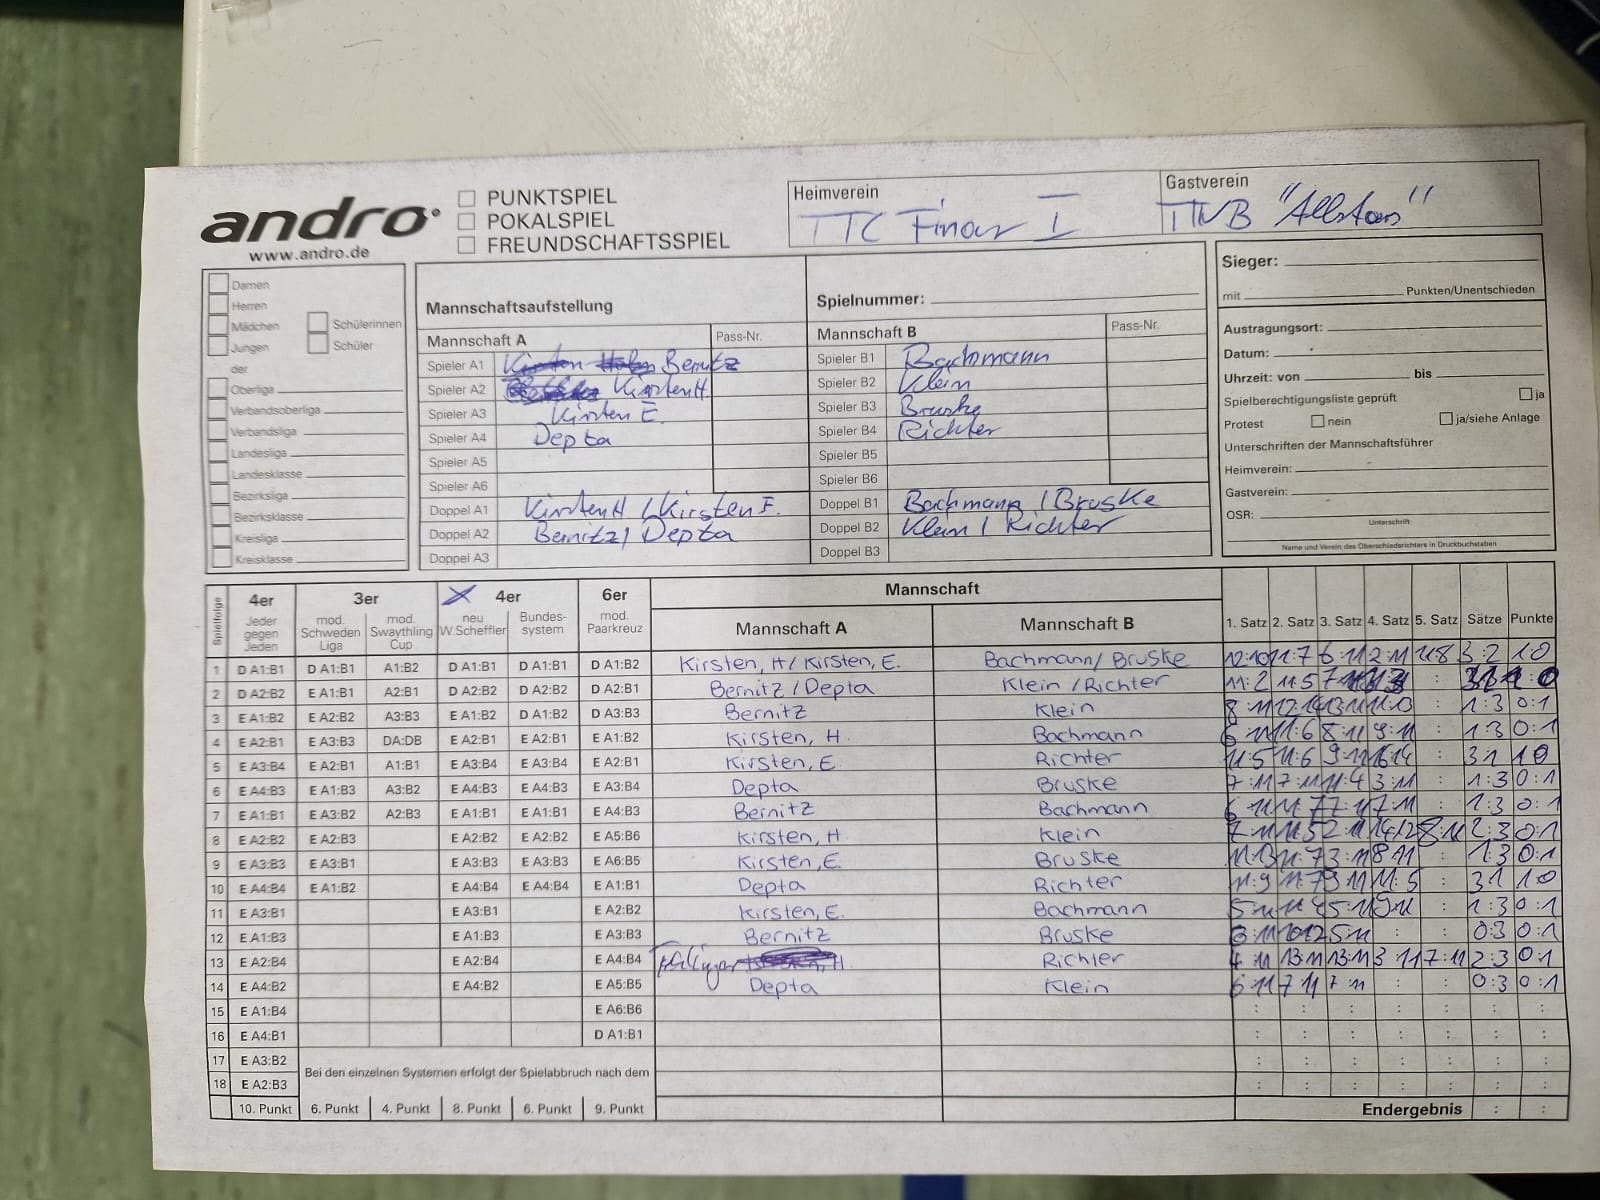 andro
www.andro.de
PUNKTSPIEL
POKALSPIEL
FREUNDSCHAFTSSPIEL
Heimverein
TTC Finow I
Gastverein
TTVB "Allstars"
Damen
Herren
Mädchen Schülerinnen
Jungen Schüler
der
Oberliga
Verbandsoberliga
Verbandsliga
Landesliga
Landesklasse
Bezirksliga
Bezirksklasse
Kreisliga
Kreisklasse
Mannschaftsaufstellung
Mannschaft A Pass-Nr.
Spieler A1 Bernitz
Spieler A2 Kirsten H
Spieler A3 Kirsten E.
Spieler A4 Depta
Spieler A5
Spieler A6
Doppel A1 Kirsten H / Kirsten E.
Doppel A2 Bernitz / Depta
Doppel A3
Spielnummer:
Mannschaft B Pass-Nr.
Spieler B1 Bachmann
Spieler B2 Klein
Spieler B3 Bruske
Spieler B4 Richter
Spieler B5
Spieler B6
Doppel B1 Bachmann / Bruske
Doppel B2 Klein / Richter
Doppel B3
Sieger:
mit Punkten/Unentschieden
Austragungsort:
Datum:
Uhrzeit: von bis
Spielberechtigungsliste geprüft ja
Protest nein ja/siehe Anlage
Unterschriften der Mannschaftsführer
Heimverein:
Gastverein:
OSR:
Unterschrift
Name und Verein des Oberschiedsrichters in Druckbuchstaben
Spielfolge
4er Jeder gegen Jeden
3er mod. Schweden Liga mod. Swaythling Cup
X 4er neu W.Scheffler Bundes-system
6er mod. Paarkreuz
Mannschaft
Mannschaft A Mannschaft B 1. Satz 2. Satz 3. Satz 4. Satz 5. Satz Sätze Punkte
1 D A1:B1 D A1:B1 A1:B2 D A1:B1 D A1:B1 D A1:B2 Kirsten, H/ Kirsten, E. Bachmann/ Bruske 12:10 11:7 6:11 2:11 11:8 3:2 1:0
2 D A2:B2 E A1:B1 A2:B1 D A2:B2 D A2:B2 D A2:B1 Bernitz / Depta Klein / Richter 11:2 11:5 3:1 1:0
3 E A1:B2 E A2:B2 A3:B3 E A1:B2 D A1:B2 D A3:B3 Bernitz Klein 8:11 12:14 13:11 1:3 0:1
4 E A2:B1 E A3:B3 DA:DB E A2:B1 E A2:B1 E A1:B2 Kirsten, H. Bachmann 6:11 11:6 8:11 9:11 1:3 0:1
5 E A3:B4 E A2:B1 A1:B1 E A3:B4 E A3:B4 E A2:B1 Kirsten, E. Richter 11:5 11:6 9:11 16:14 3:1 1:0
6 E A4:B3 E A1:B3 A3:B2 E A4:B3 E A4:B3 E A3:B4 Depta Bruske 7:11 7:11 11:4 3:11 1:3 0:1
7 E A1:B1 E A3:B2 A2:B3 E A1:B1 E A1:B1 E A4:B3 Bernitz Bachmann 6:11 11:7 7:11 7:11 1:3 0:1
8 E A2:B2 E A2:B3 E A2:B2 E A2:B2 E A5:B6 Kirsten, H. Klein 7:11 11:5 2:11 14:12 8:11 2:3 0:1
9 E A3:B3 E A3:B1 E A3:B3 E A3:B3 E A6:B5 Kirsten, E. Bruske 11:13 11:7 3:11 8:11 1:3 0:1
10 E A4:B4 E A1:B2 E A4:B4 E A4:B4 E A1:B1 Depta Richter 11:9 11:7 9:11 11:5 3:1 1:0
11 E A3:B1 E A3:B1 E A2:B2 Kirsten, E. Bachmann 5:11 5:11 9:11 1:3 0:1
12 E A1:B3 E A1:B3 E A3:B3 Bernitz Bruske 3:11 10:12 5:11 0:3 0:1
13 E A2:B4 E A2:B4 E A4:B4 Richter 4:11 13:11 13:11 3:11 7:11 2:3 0:1
14 E A4:B2 E A4:B2 E A5:B5 Depta Klein 6:11 7:11 7:11 0:3 0:1
15 E A1:B4 E A6:B6
16 E A4:B1 D A1:B1
17 E A3:B2
18 E A2:B3
Bei den einzelnen Systemen erfolgt der Spielabbruch nach dem
10. Punkt 6. Punkt 4. Punkt 8. Punkt 6. Punkt 9. Punkt Endergebnis : :